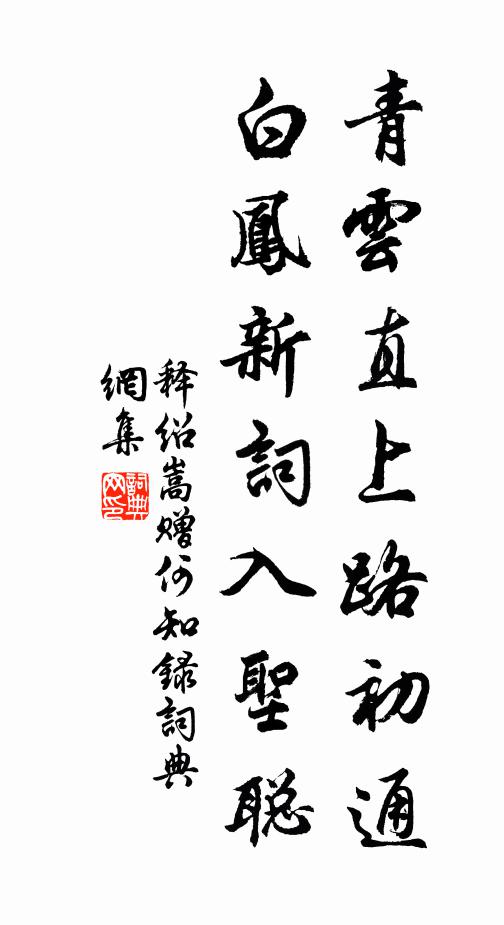 青雲直上路初通
白鳳新詞入聖聪
释绍嵩赠何知録詞典
網集
詞典
网印